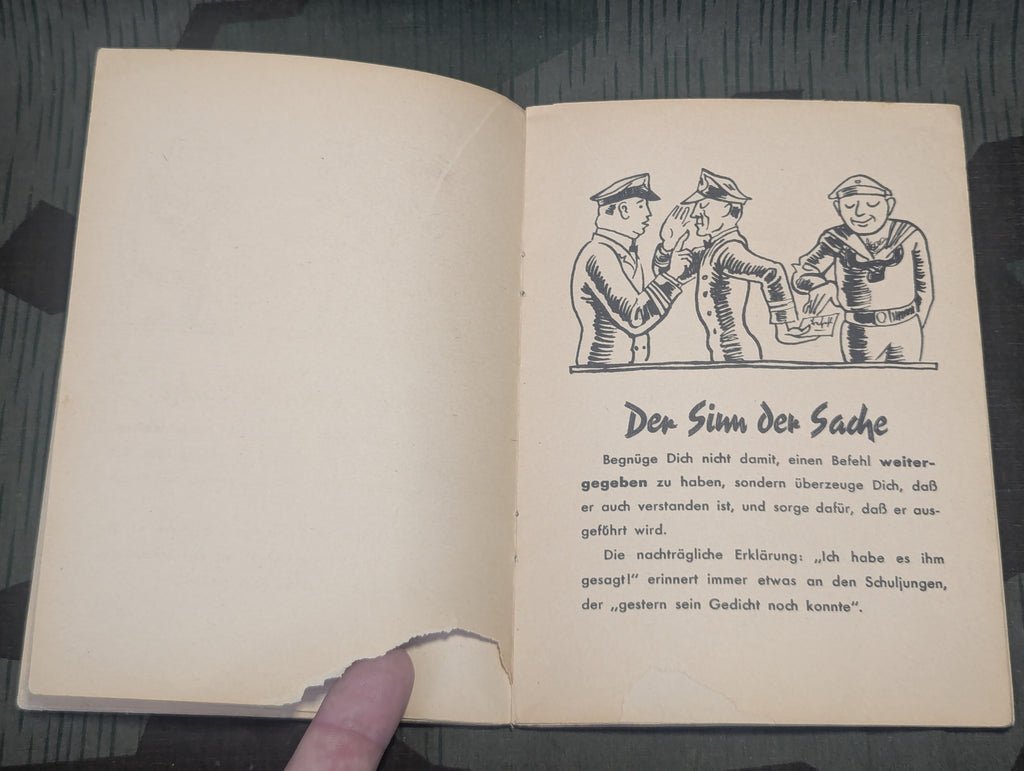 Der Sinn der Sache
Begnüge Dich nicht damit, einen Befehl weiter-
gegeben zu haben, sondern überzeuge Dich, daß
er auch verstanden ist, und sorge dafür, daß er aus-
geführt wird.
Die nachträgliche Erklärung: „Ich habe es ihm
gesagt!“ erinnert immer etwas an den Schuljungen,
der „gestern sein Gedicht noch konnte“.